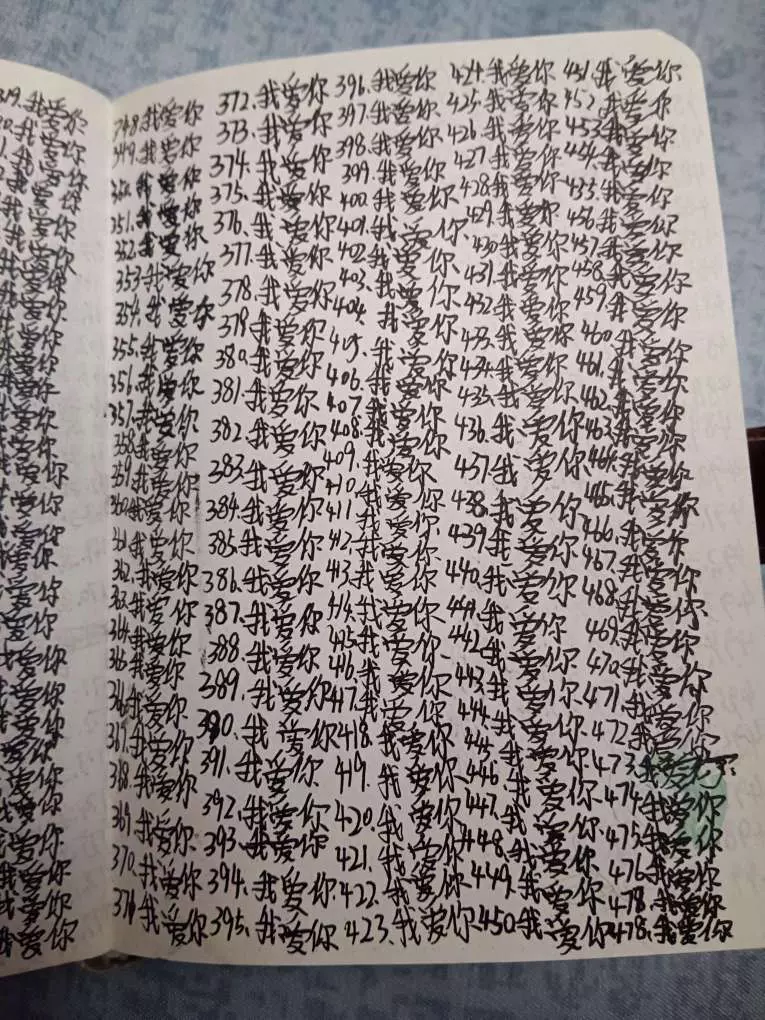 我爱你
我爱你
我爱你
我爱你
我爱你
348.我爱你
349.我爱你
350.我爱你
351.我爱你
352.我爱你
353.我爱你
354.我爱你
355.我爱你
356.我爱你
357.我爱你
358.我爱你
359.我爱你
360.我爱你
361.我爱你
362.我爱你
363.我爱你
364.我爱你
365.我爱你
366.我爱你
367.我爱你
368.我爱你
369.我爱你
370.我爱你
371.我爱你
372.我爱你
373.我爱你
374.我爱你
375.我爱你
376.我爱你
377.我爱你
378.我爱你
379.我爱你
380.我爱你
381.我爱你
382.我爱你
383.我爱你
384.我爱你
385.我爱你
386.我爱你
387.我爱你
388.我爱你
389.我爱你
390.我爱你
391.我爱你
392.我爱你
393.我爱你
394.我爱你
395.我爱你
396.我爱你
397.我爱你
398.我爱你
399.我爱你
400.我爱你
401.我爱你
402.我爱你
403.我爱你
404.我爱你
405.我爱你
406.我爱你
407.我爱你
408.我爱你
409.我爱你
410.我爱你
411.我爱你
412.我爱你
413.我爱你
414.我爱你
415.我爱你
416.我爱你
417.我爱你
418.我爱你
419.我爱你
420.我爱你
421.我爱你
422.我爱你
423.我爱你
424.我爱你
425.我爱你
426.我爱你
427.我爱你
428.我爱你
429.我爱你
430.我爱你
431.我爱你
432.我爱你
433.我爱你
434.我爱你
435.我爱你
436.我爱你
437.我爱你
438.我爱你
439.我爱你
440.我爱你
441.我爱你
442.我爱你
443.我爱你
444.我爱你
445.我爱你
446.我爱你
447.我爱你
448.我爱你
449.我爱你
450.我爱你
451.我爱你
452.我爱你
453.我爱你
454.我爱你
455.我爱你
456.我爱你
457.我爱你
458.我爱你
459.我爱你
460.我爱你
461.我爱你
462.我爱你
463.我爱你
464.我爱你
465.我爱你
466.我爱你
467.我爱你
468.我爱你
469.我爱你
470.我爱你
471.我爱你
472.我爱你
473.我爱
474.我爱你
475.我爱你
476.我爱你
478.我爱你
478.我爱你